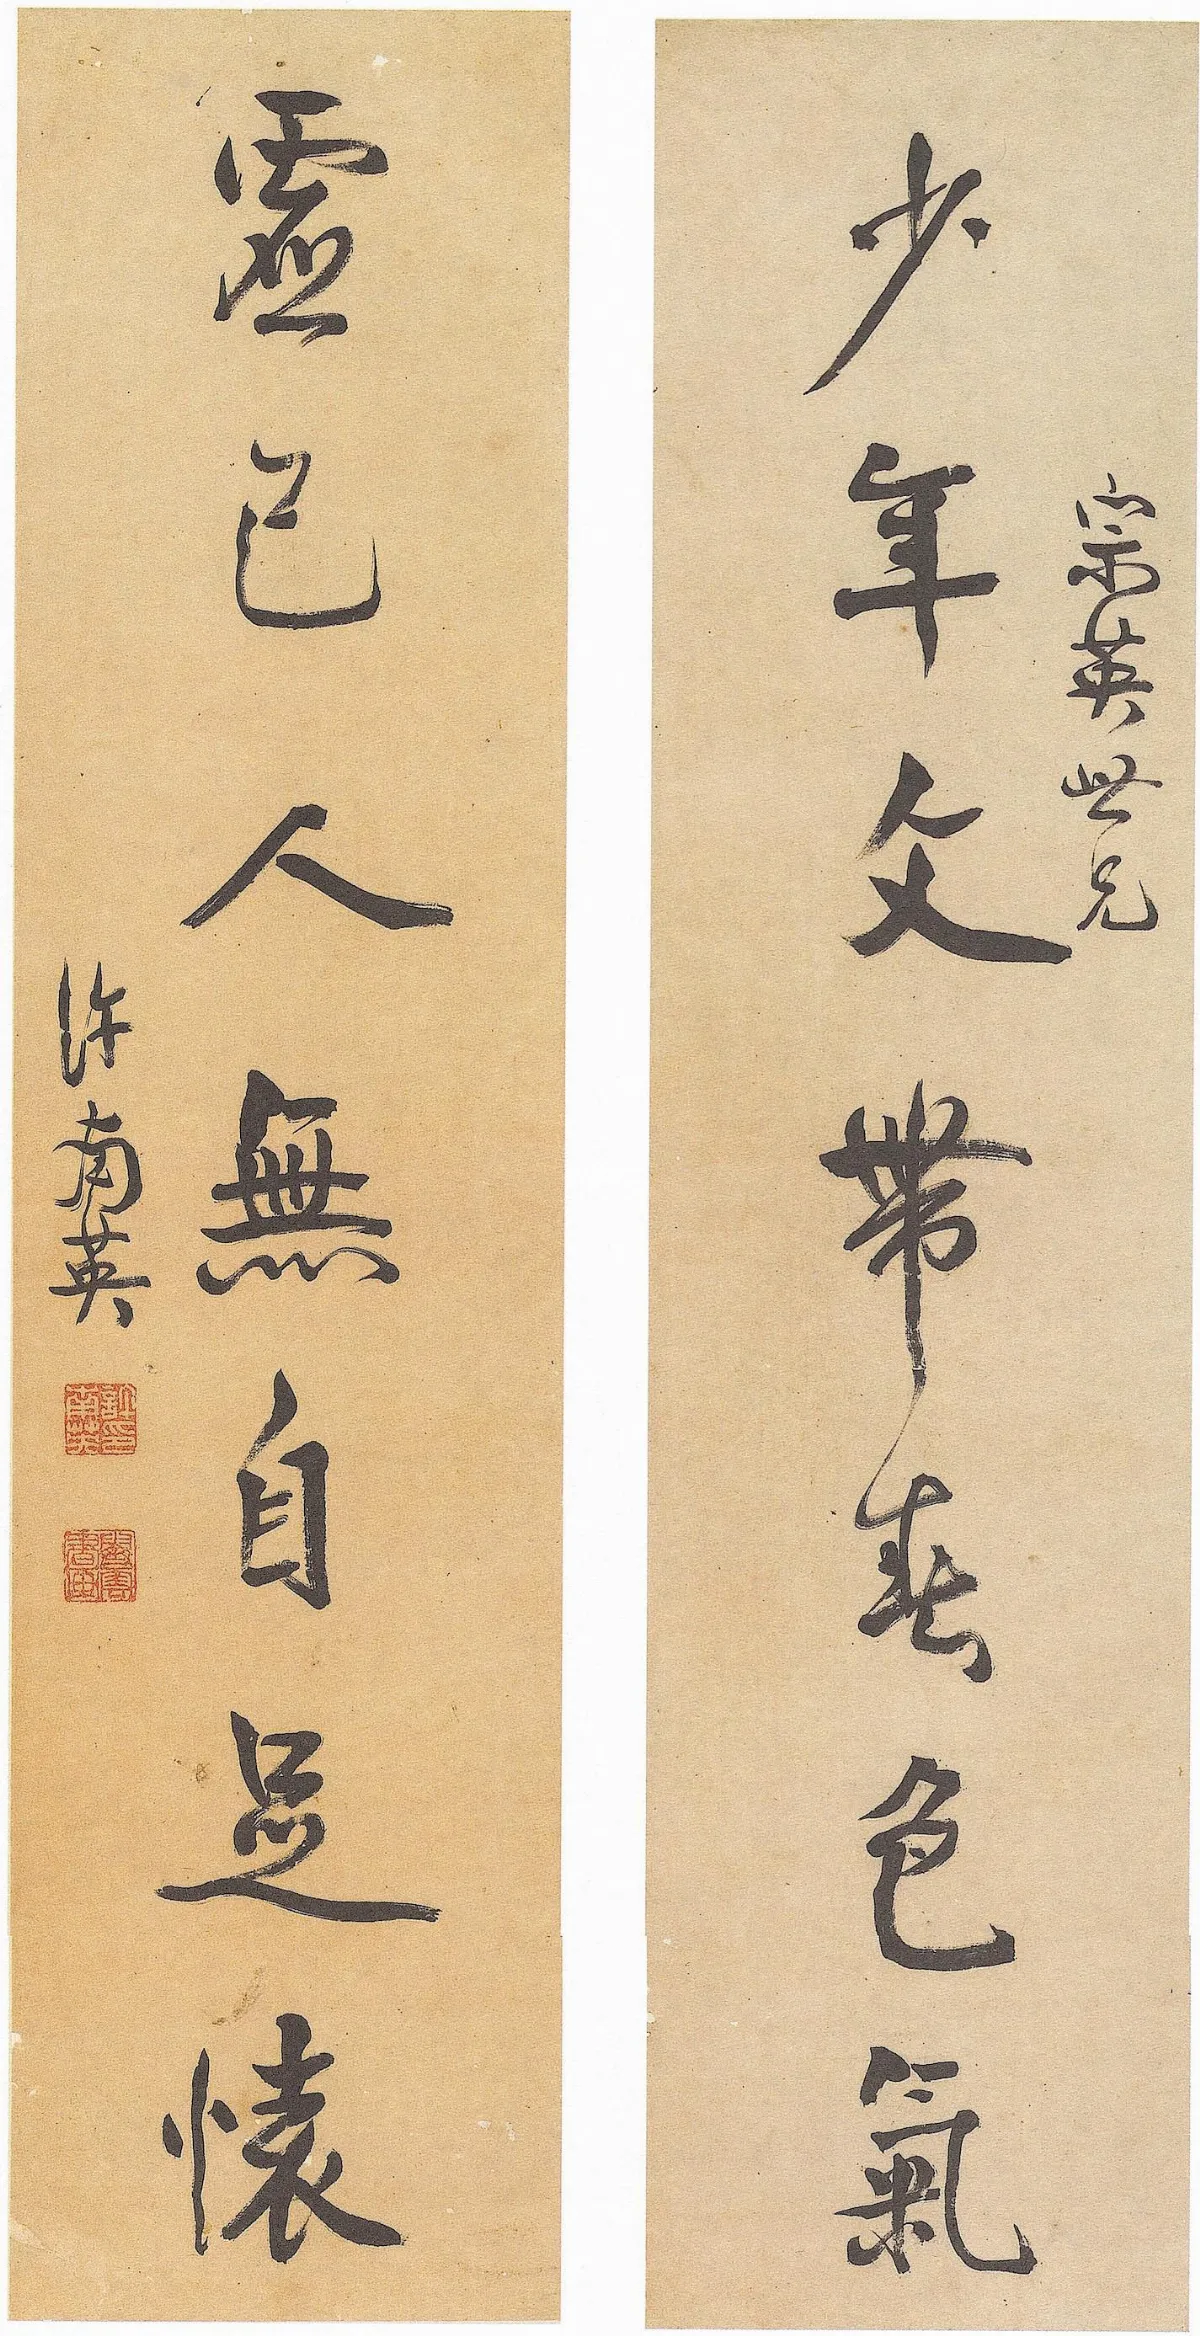 宗英世兄
少年文帶春色氣
虛己人無自足懷
許南英